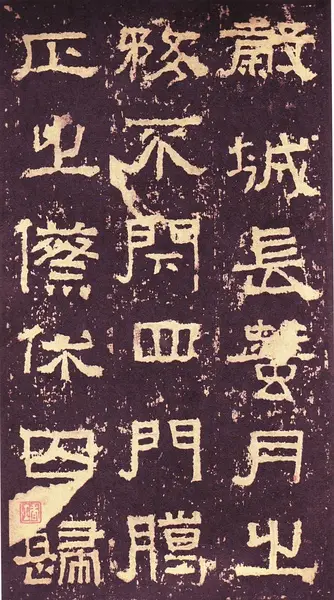 穀城長蠶月之
務不閉四門臘
正之傺休囚歸